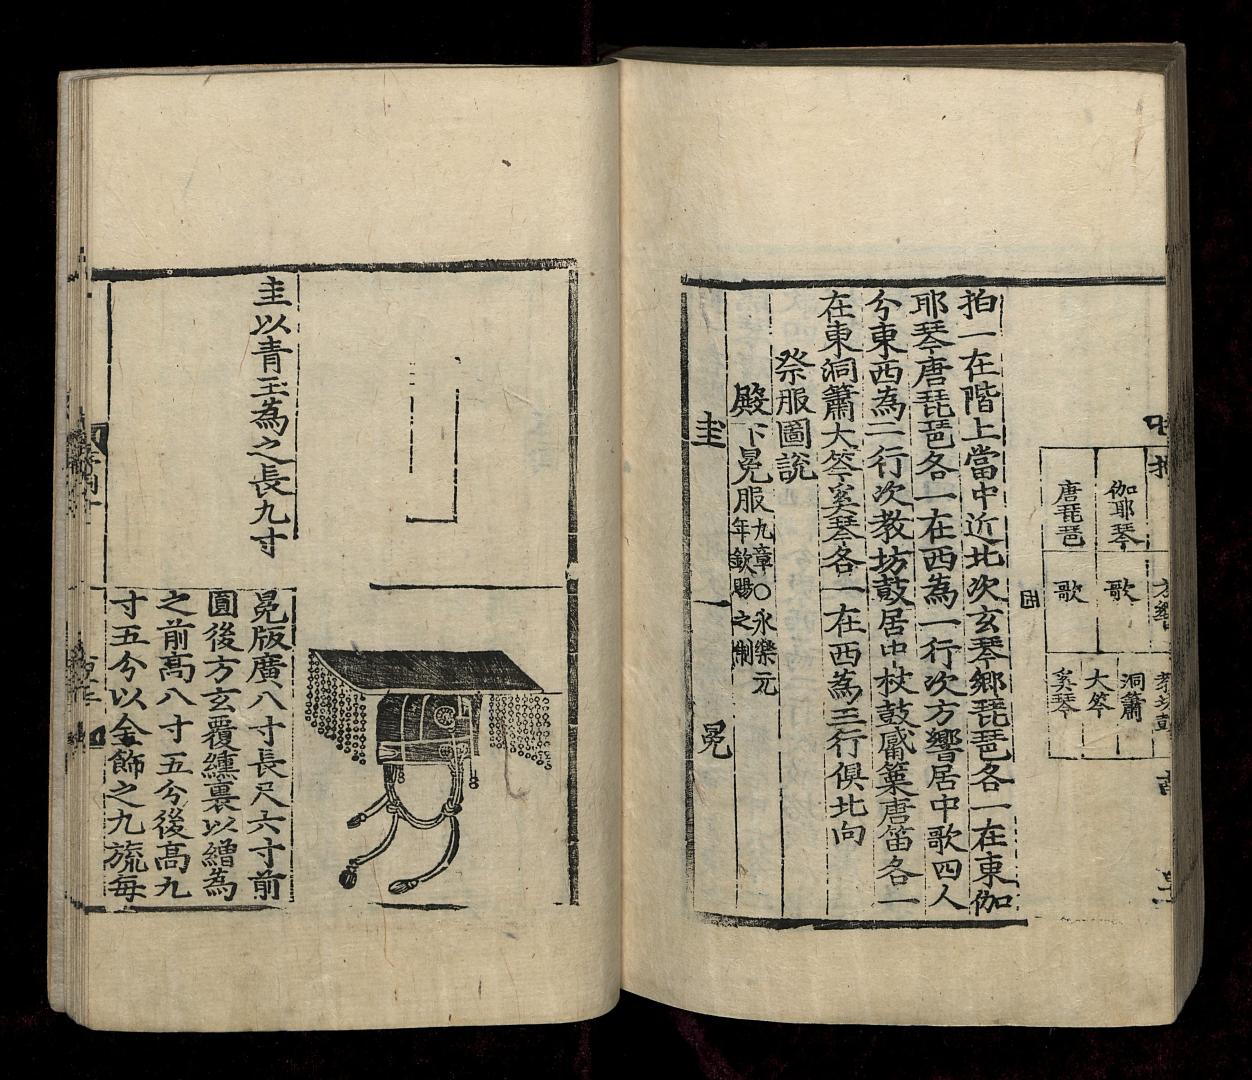 拍
方響
教坊鼓
伽耶琴
歌
洞簫
大笒
唐琵琶
歌
奚琴
拍一在階上當中近北次玄琴鄉琵琶各一在東伽
耶琴唐琵琶各一在西為一行次方響居中歌四人
分東西為二行次教坊鼓居中杖鼓觱篥唐笛各一
在東洞簫大笒奚琴各一在西為三行俱北向
祭服圖說
殿下冕服九章〇永樂元
年欽賜之制
圭
冕
圭以青玉為之長九寸
冕版廣八寸長尺六寸前
圓後方玄覆纁裏以繒為
之前高八寸五分後高九
寸五分以金飾之九旒每